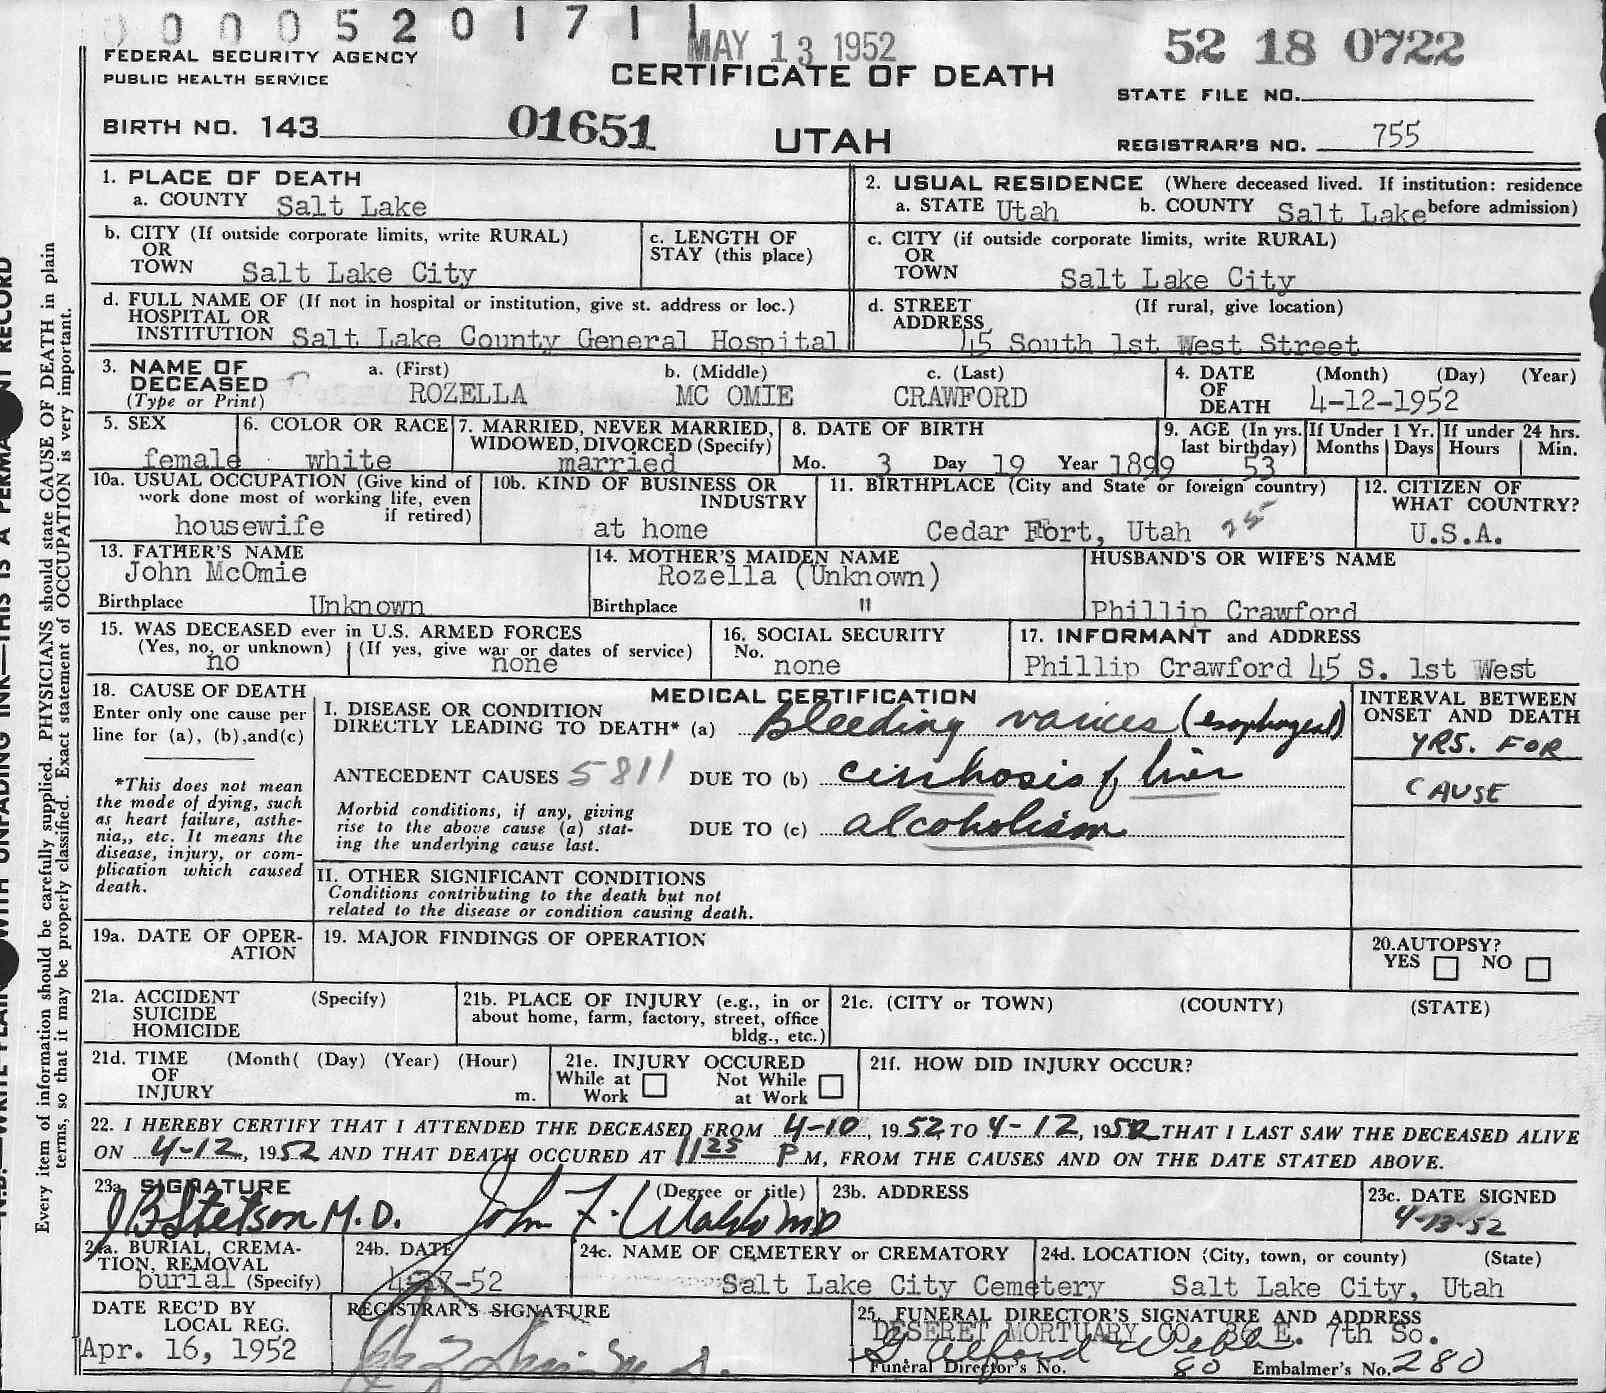 0 0 0 0 5 2 0 1 7 1 1
MAY 13 1952
52 18 0722
FEDERAL SECURITY AGENCY
PUBLIC HEALTH SERVICE
CERTIFICATE OF DEATH
STATE FILE NO.
BIRTH NO. 143 01651
UTAH
REGISTRAR'S NO. 755
1. PLACE OF DEATH
a. COUNTY Salt Lake
2. USUAL RESIDENCE (Where deceased lived. If institution: residence
a. STATE Utah b. COUNTY Salt Lake before admission)
b. CITY (If outside corporate limits, write RURAL)
OR
TOWN Salt Lake City
c. LENGTH OF
STAY (this place)
c. CITY (if outside corporate limits, write RURAL)
OR
TOWN Salt Lake City
d. FULL NAME OF (If not in hospital or institution, give st. address or loc.)
HOSPITAL OR
INSTITUTION Salt Lake County General Hospital
d. STREET (If rural, give location)
ADDRESS
45 South 1st West Street
3. NAME OF
DECEASED
(Type or Print)
a. (First) b. (Middle) c. (Last)
ROZELLA MC OMIE CRAWFORD
4. DATE (Month) (Day) (Year)
OF
DEATH 4-12-1952
5. SEX
female
6. COLOR OR RACE
white
7. MARRIED, NEVER MARRIED,
WIDOWED, DIVORCED (Specify)
married
8. DATE OF BIRTH
Mo. 3 Day 19 Year 1899
9. AGE (In yrs.
last birthday)
53
If Under 1 Yr.
Months Days
If under 24 hrs.
Hours Min.
10a. USUAL OCCUPATION (Give kind of
work done most of working life, even
if retired)
housewife
10b. KIND OF BUSINESS OR
INDUSTRY
at home
11. BIRTHPLACE (City and State or foreign country)
Cedar Fort, Utah
12. CITIZEN OF
WHAT COUNTRY?
U.S.A.
13. FATHER'S NAME
John McOmie
Birthplace Unknown
14. MOTHER'S MAIDEN NAME
Rozella (Unknown)
Birthplace "
HUSBAND'S OR WIFE'S NAME
Phillip Crawford
15. WAS DECEASED ever in U.S. ARMED FORCES
(Yes, no, or unknown) (If yes, give war or dates of service)
no none
16. SOCIAL SECURITY
No.
none
17. INFORMANT and ADDRESS
Phillip Crawford 45 S. 1st West
18. CAUSE OF DEATH
Enter only one cause per
line for (a), (b), and(c)
*This does not mean
the mode of dying, such
as heart failure, asthe-
nia,, etc. It means the
disease, injury, or com-
plication which caused
death.
MEDICAL CERTIFICATION
I. DISEASE OR CONDITION
DIRECTLY LEADING TO DEATH* (a) Bleeding varices (esophageal)
ANTECEDENT CAUSES 5811 DUE TO (b) cirrhosis of liver
Morbid conditions, if any, giving
rise to the above cause (a) stat-
ing the underlying cause last.
DUE TO (c) alcoholism
INTERVAL BETWEEN
ONSET AND DEATH
YRS. FOR
CAUSE
II. OTHER SIGNIFICANT CONDITIONS
Conditions contributing to the death but not
related to the disease or condition causing death.
19a. DATE OF OPER-
ATION
19. MAJOR FINDINGS OF OPERATION
20. AUTOPSY?
YES NO
21a. ACCIDENT (Specify)
SUICIDE
HOMICIDE
21b. PLACE OF INJURY (e.g., in or
about home, farm, factory, street, office
bldg., etc.)
21c. (CITY or TOWN) (COUNTY) (STATE)
21d. TIME (Month( (Day) (Year) (Hour)
OF
INJURY m.
21e. INJURY OCCURED
While at Work
Not While at Work
21f. HOW DID INJURY OCCUR?
22. I HEREBY CERTIFY THAT I ATTENDED THE DECEASED FROM 4-10, 1952 TO 4-12, 1952 THAT I LAST SAW THE DECEASED ALIVE
ON 4-12, 1952 AND THAT DEATH OCCURED AT 1125 P M, FROM THE CAUSES AND ON THE DATE STATED ABOVE.
23a. SIGNATURE (Degree or title)
J B Stetson M.D. John F. MD
23b. ADDRESS
23c. DATE SIGNED
4-13-52
24a. BURIAL, CREMA-
TION, REMOVAL
burial (Specify)
24b. DATE
-52
24c. NAME OF CEMETERY or CREMATORY
Salt Lake City Cemetery
24d. LOCATION (City, town, or county) (State)
Salt Lake City, Utah
DATE REC'D BY
LOCAL REG.
Apr. 16, 1952
REGISTRAR'S SIGNATURE
25. FUNERAL DIRECTOR'S SIGNATURE AND ADDRESS
DESERET MORTUARY CO. 36 E. 7th So.
Funeral Director's No. 80 Embalmer's No. 280
Every item of information should be carefully supplied. PHYSICIANS should state CAUSE OF DEATH in plain
terms, so that it may be properly classified. Exact statement of OCCUPATION is very important.
WITH UNFADING INK—THIS IS A RECORD